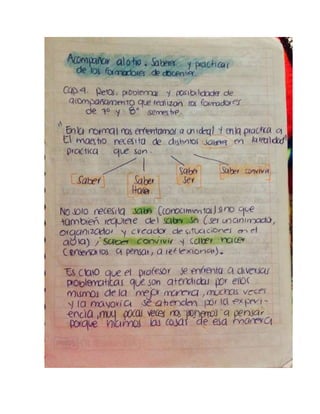 Acompañar al otro. Saberes y practicas
de los formadores de docentes.
Cap. 4. Retos, problemas y posibilidades de
acompañamiento que realizan los formadores
de 7° y 8° semestre.
"En la normal nos enfrentamos a un ideal y en la practica a la realidad"
El maestro necesita de distintos saberes en
practica que son.
Saber
Saber Hacer
Saber Ser
Saber convivir
No solo necesita saber (conocimientos) sino que
tambien requiere del saber ser (ser un animador,
organizador y creador de situaciones en el
aula), saber convivir y saber hacer
(enseñarlos a pensar, a reflexionar).
Es claro que el profesor se enfrenta a diversas
problematicas que son atendidas por ellos
mismos de la mejor manera, muchas veces
y la mayoria se atienden por la experi-
encia, muy pocas veces nos ponemos a pensar
porque hicimos las cosas de esa manera